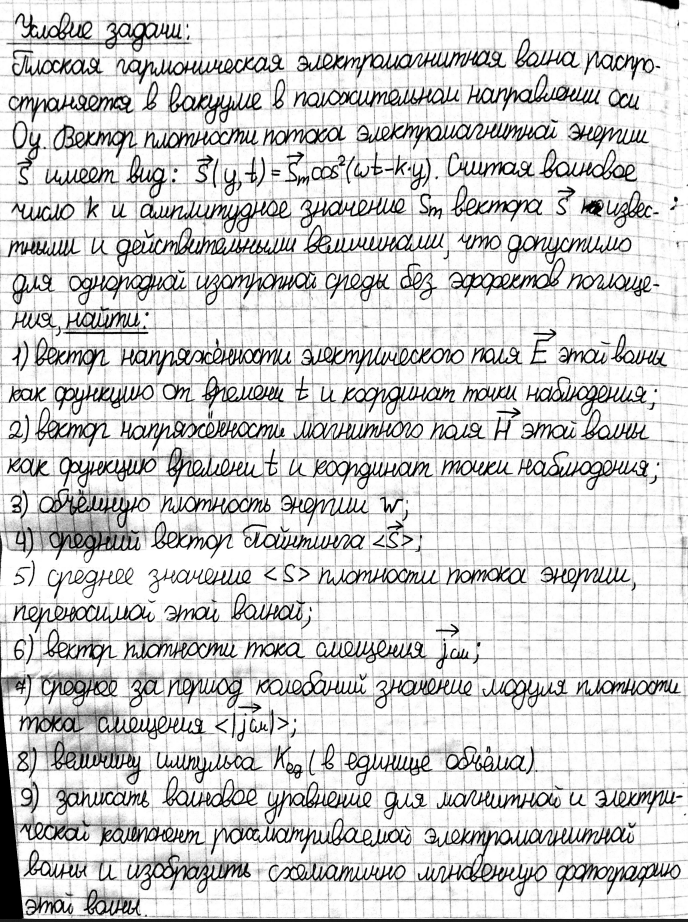 Условие задачи:
Плоская гармоническая электромагнитная волна распро-
страняется в вакууме в положительном направлении оси
Oy. Вектор плотности потока электромагнитной энергии
S⃗ имеет вид: S⃗(y,t)=S⃗m cos²(ωt-k·y). Считая волновое
число k и амплитудное значение Sm вектора S⃗ извес-
тными и действительными величинами, что допустимо
для однородной изотропной среды без эффектов поглоще-
ния, найти:
1) вектор напряжённости электрического поля E⃗ этой волны
как функцию от времени t и координат точки наблюдения;
2) вектор напряжённости магнитного поля H⃗ этой волны
как функцию времени t и координат точки наблюдения;
3) объёмную плотность энергии w;
4) средний вектор Пойнтинга <S⃗>;
5) среднее значение <S> плотности потока энергии,
переносимой этой волной;
6) вектор плотности тока смещения j⃗см;
7) среднее за период колебаний значение модуля плотности
тока смещения <|j⃗см|>;
8) величину импульса Kед (в единице объёма).
9) записать волновое уравнение для магнитной и электри-
ческой компонент рассматриваемой электромагнитной
волны и изобразить схематично мгновенную фотографию
этой волны.